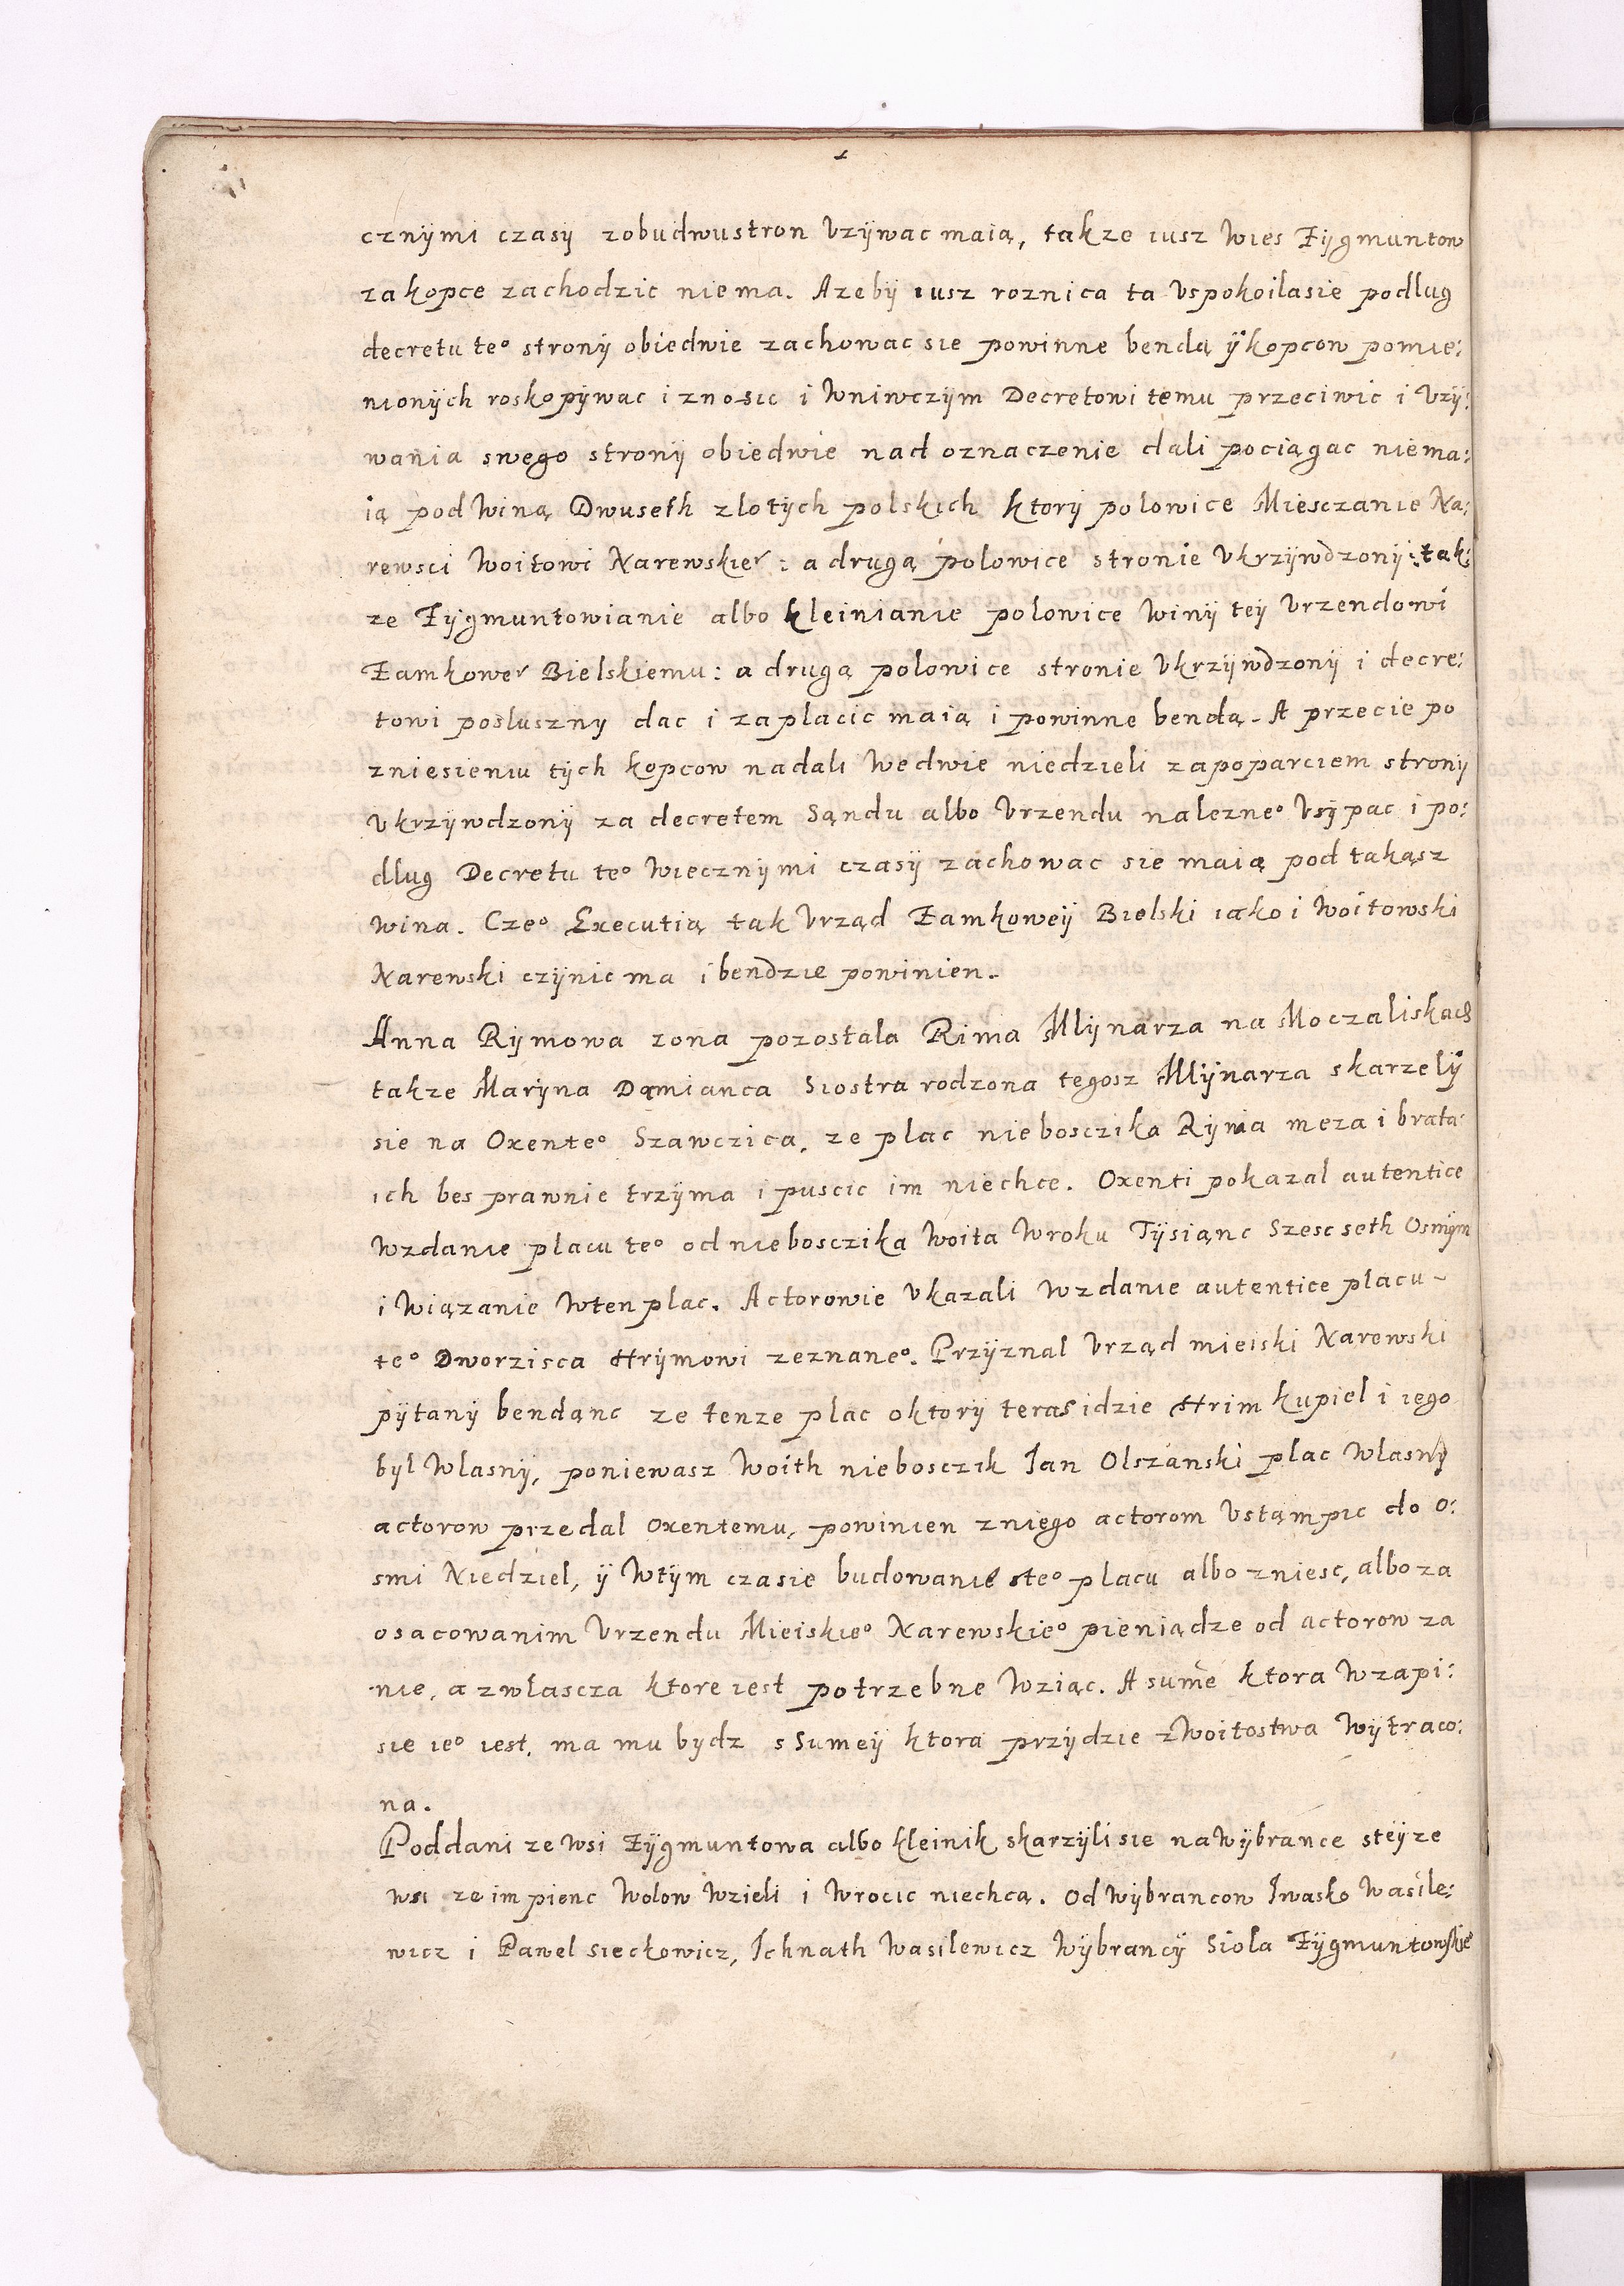 cznÿmi czasÿ zobudwustron Vzÿwac maią, takze iusz Wies Zÿgmuntow
za kopce zachodzic nie ma. Azebÿ iusz roznica ta Vspokoilasie podlug
decretu teº stronÿ obiedwie zachowac sie powinne bendą ÿ kopcow pomie:
nionÿch roskopÿwac i znosic i Wniwczÿm Decretowi temu przeciwic i Vzÿ:
wania swego stronÿ obiedwie nad oznaczenie dali pociągac niema:
ią pod Winą Dwuseth zlotÿch polskich ktorÿ polowice Miesczanie Na:
rewsci Woitowi Narewskieʳ: a drugą polowice stronie Vkrzÿwdzonÿ: tak:
ze Zÿgmuntowianie albo kleinianie polowice Winÿ teÿ Vrzendowi
Zamkoweʳ Bielskiemu: a drugą polowice stronie Vkrzÿwdzonÿ i decre:
towi posluszny dac i zaplacic maią i powinne bendą. A przecie po
zniesieniu tÿch kopcow nadali Wedwie niedzieli zapoparciem stronÿ
Vkrzÿwdzonÿ za decretem Sąndu albo Vrzendu nalezneº Vsÿpac i po:
dlug Decretu teº Wiecznÿmi czasÿ zachowac sie maią pod takąsz
Wina. Czeº Executią tak Vrząd Zamkoweÿ Bielski iako i Woitowski
Narewski czÿnic ma i bendzie powinien.
Anna Rÿmowa zona pozostala Rima Mlÿnarza na Moczaliskach
takze Marÿna Damianca Siostra rodzona tegosz Mlÿnarza skarzelÿ
sie na Oxenteº Szawczica, ze plac niebosczika Rÿma meza i brata
ich bes prawnie trzÿma i puscic im niechce. Oxenti pokazal autentice
Wzdanie placu teº od niebosczika Woita Wroku Tÿsiąnc Szesc seth Osmÿm
i Wiązanie Wten plac. Actorowie Vkazali Wzdanie autentice placu
teº Dworzisca Hrÿmowi zeznaneº. Przÿznal Vrząd mieiski Narewski
pÿtanÿ bendąnc ze tenze plac oktorÿ teras idzie Hrim kupiel i iego
bÿl Wlasnÿ, poniewasz Woith niebosczik Jan Olszanski plac Wlasnÿ
actorow przedal Oxentemu, powinien zniego actorom Vstąmpic do o:
smi Niedziel, ÿ Wtÿm czasie budowanie steº placu albo zniesc, albo za
osacowanim Vrzendu Mieiskieº Narewskieº pieniądze od actorow za
nie, a zwlascza ktore iest potrzebne Wziąc. A sume ktora Wzapi:
sie ieº iest, ma mu bydz s Sumeÿ ktora przÿdzie z Woitostwa Wÿtraco:
na.
Poddani ze Wsi Zÿgmuntowa albo kleinik skarzÿli sie na Wÿbrance steÿze
wsi ze im pienc Wolow Wzieli i Wrocic niechcą. Od Wÿbrancow Iwasko Wasile:
wicz i Pawel sieckowicz, Ichnath Wasilewicz Wÿbrancÿ Siola Zÿgmuntowskieº